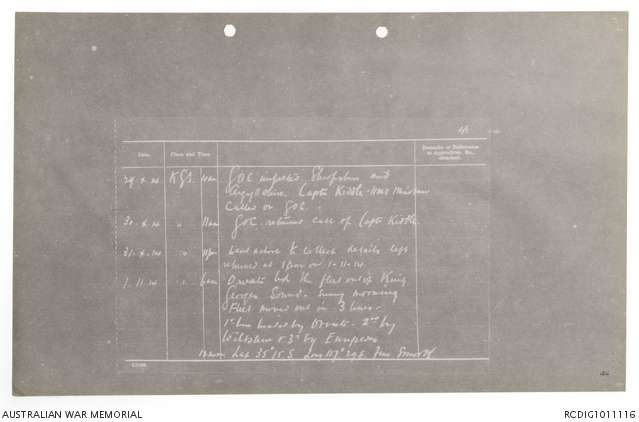 Date. Place and Time Remarks or References to Appendices, &c., attached.
29.X.14 KGS. 10am GOC inspected Shropshire and
Argyllshire. Capt Kiddle HMS
called on GOC.
30.X.14 " 11am GOC returned call of Capt Kiddle
31.X.14 " Sent ashore to collect details left
returned at on 1-11-14
1.11.14 " 6am Orvieto led the fleet out of King
Georges Sound. Sunny morning
Fleet moved out in 3 lines -
1st line headed by Orvieto - 2nd by
Wiltshire & 3rd by Euripides
12 noon Lat 35° 15 S Long 117° 29 E Fine Smooth
AUSTRALIAN WAR MEMORIAL
RCDIG1011116